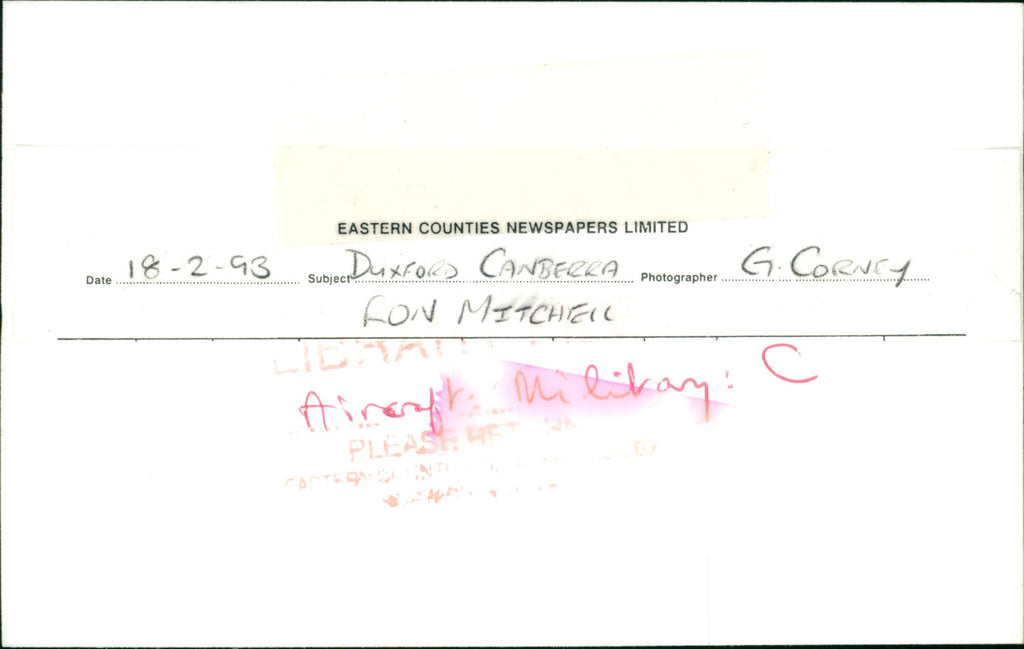 EASTERN COUNTIES NEWSPAPERS LIMITED
Date 18-2-93 Subject DUXFORD CANBERRA Photographer G. CORNEY
RON MITCHELL
LIBRARY
Aircraft: Military: C
PLEASE RET
EASTERN COUNTI